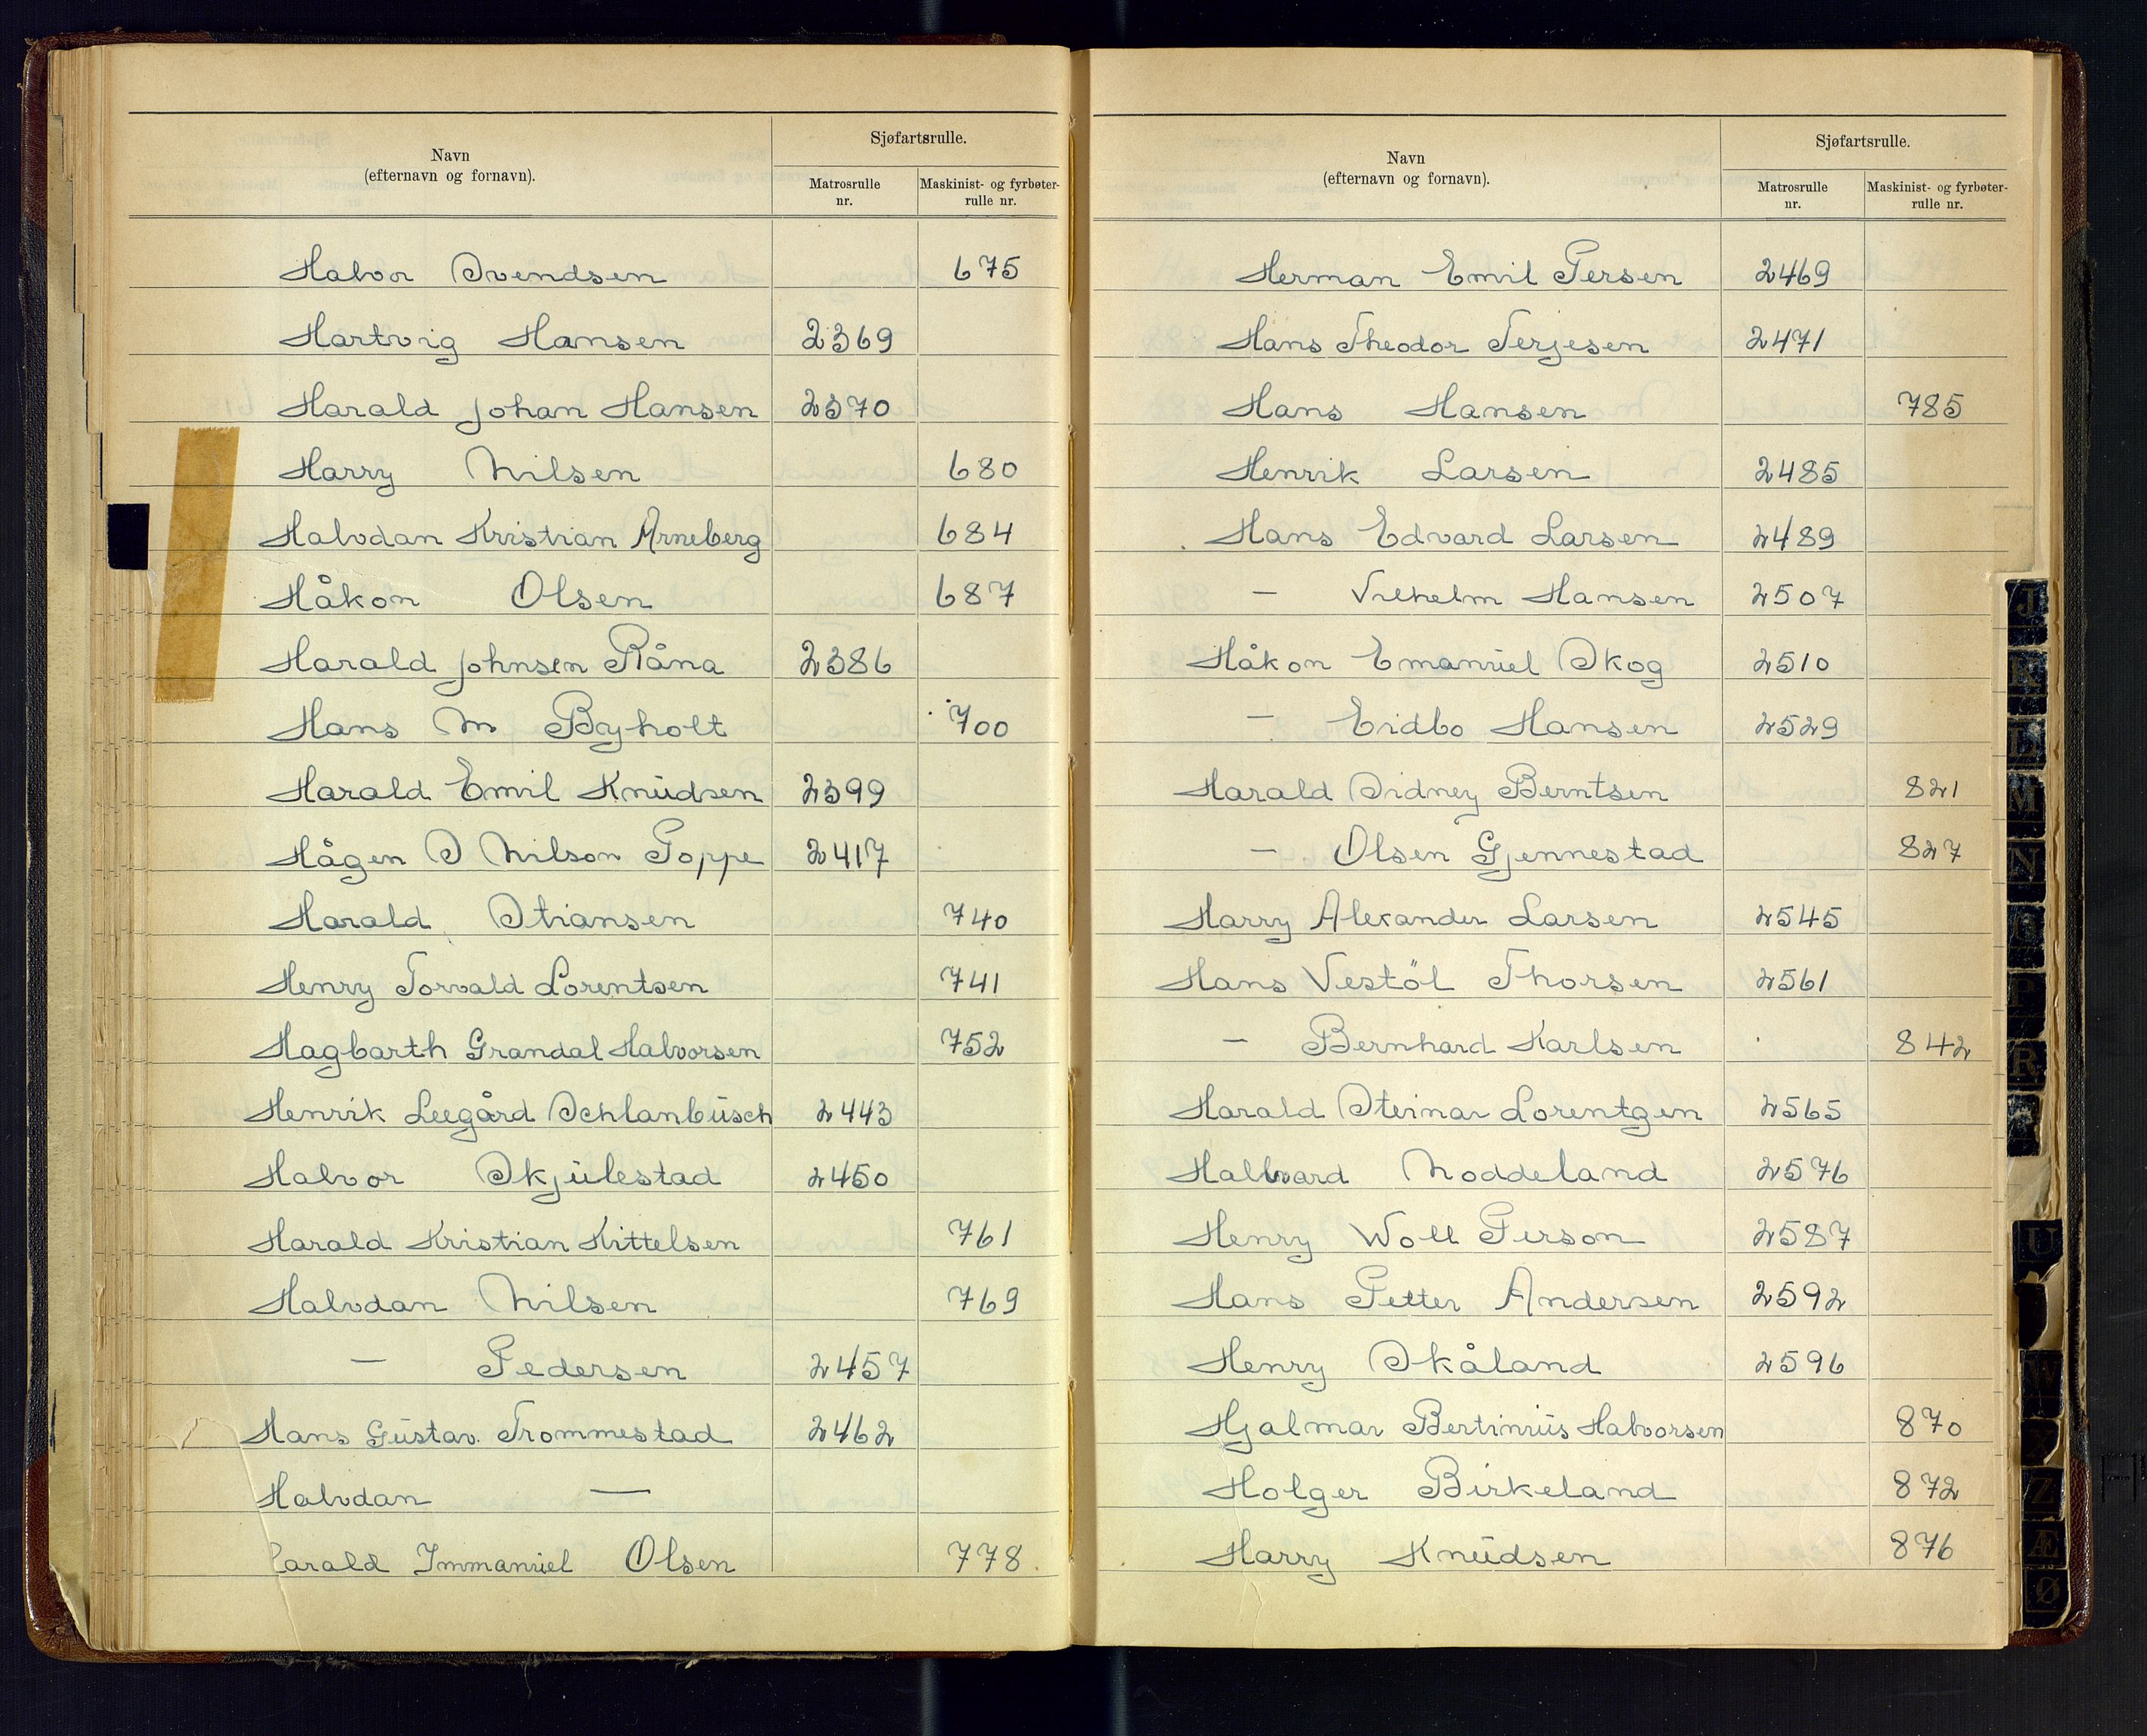 Navn
(efternavn og fornavn).
Sjøfartsrulle.
Matrosrulle nr.
Maskinist- og fyrbøter-rulle nr.
Halvor Svendsen 675
Hartvig Hansen 2369
Harald Johan Hansen 2370
Harry Nilsen 680
Halvdan Kristian Arneberg 684
Håkon Olsen 687
Harald Johnsen Råna 2386
Hans M Byholt 700
Harald Emil Knudsen 2399
Hågen S Nilson Poppe 2417
Harald Stiansen 740
Henry Torvald Lorentsen 741
Hagbarth Grandal Halvorsen 752
Henrik Leegård Schlanbusch 2443
Halvor Skjulestad 2450
Harald Kristian Kittelsen 761
Halvdan Nilsen 769
— Pedersen 2457
Hans Gustav. Trommestad 2462
Halvdan —
Harald Immanuel Olsen 778
Navn
(efternavn og fornavn).
Sjøfartsrulle.
Matrosrulle nr.
Maskinist- og fyrbøter-rulle nr.
Herman Emil Persen 2469
Hans Theodor Terjesen 2471
Hans Hansen 785
Henrik Larsen 2485
Hans Edvard Larsen 2489
— Vilhelm Hansen 2507
Håkon Emanuel Skog 2510
— Eidbo Hansen 2529
Harald Sidney Berntsen 821
— Olsen Gjennestad 827
Harry Alexander Larsen 2545
Hans Vestöl Thorsen 2561
— Bernhard Karlsen 842
Harald Steinar Lorentzen 2565
Hallvard Noddeland 2576
Henry Woll Person 2587
Hans Petter Andersen 2592
Henry Skåland 2596
Hjalmar Bertinius Halvorsen 870
Holger Birkeland 872
Harry Knudsen 876
J
K
L
M
N
O
P
R
S
U
W
X
Z
Æ
Ø